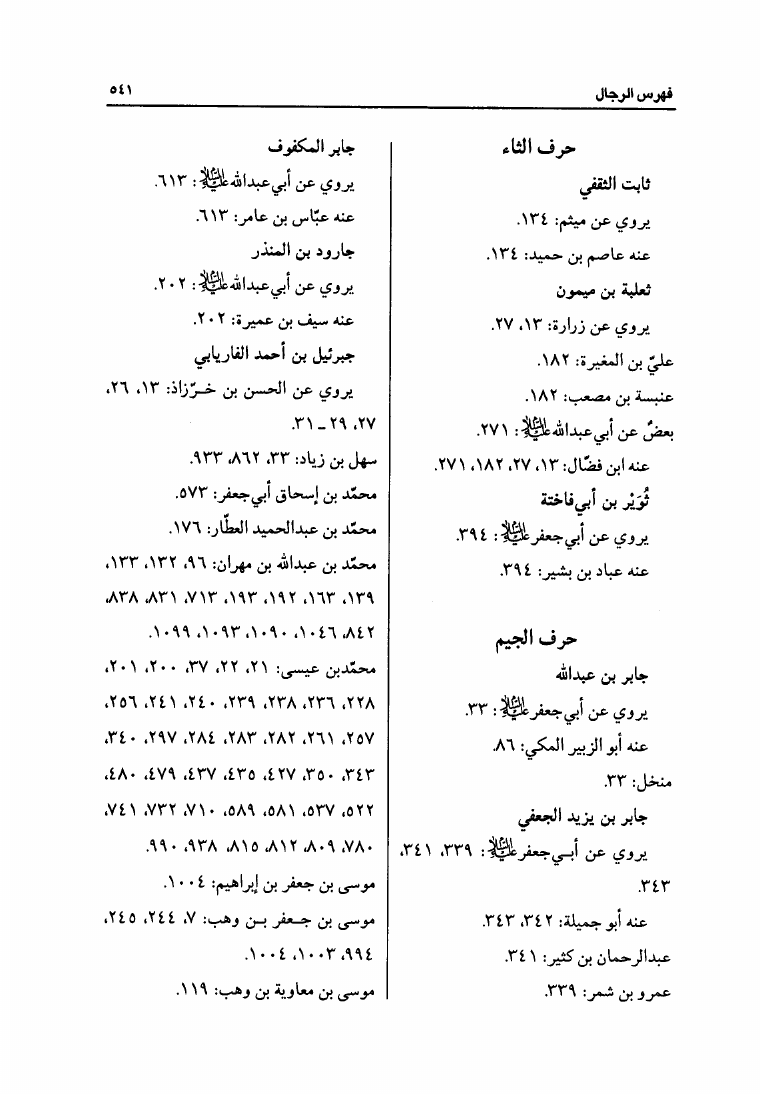 فهرس الرجال
٥٤١
حرف الثاء
ثابت الثقفي
يروي عن ميثم: ١٣٤.
عنه عاصم بن حميد: ١٣٤.
ثعلبة بن ميمون
يروي عن زرارة: ١٣، ٢٧.
عليّ بن المغيرة: ١٨٢.
عنبسة بن مصعب: ١٨٢.
بعضٌ عن أبي‌عبدالله عليه‌السلام: ٢٧١.
عنه ابن فضّال: ١٣، ٢٧، ١٨٢، ٢٧١.
ثُوَيْر بن أبي‌فاختة
يروي عن أبي‌جعفر عليه‌السلام: ٣٩٤.
عنه عباد بن بشير: ٣٩٤.
حرف الجيم
جابر بن عبدالله
يروي عن أبي‌جعفر عليه‌السلام: ٣٣.
عنه أبو الزبير المكي: ٨٦.
منخل: ٣٣.
جابر بن يزيد الجعفي
يروي عن أبي‌جعفر عليه‌السلام: ٣٣٩، ٣٤١،
٣٤٣.
عنه أبو جميلة: ٣٤٢، ٣٤٣.
عبدالرحمان بن كثير: ٣٤١.
عمرو بن شمر: ٣٣٩.
جابر المكفوف
يروي عن أبي‌عبدالله عليه‌السلام: ٦١٣.
عنه عبّاس بن عامر: ٦١٣.
جارود بن المنذر
يروي عن أبي‌عبدالله عليه‌السلام: ٢٠٢.
عنه سيف بن عميرة: ٢٠٢.
جبرئيل بن أحمد الفاريابي
يروي عن الحسن بن خرّزاذ: ١٣، ٢٦،
٢٧، ٢٩ ـ ٣١.
سهل بن زياد: ٣٣، ٨٦٢، ٩٣٣.
محمّد بن إسحاق أبي‌جعفر: ٥٧٣.
محمّد بن عبدالحميد العطّار: ١٧٦.
محمّد بن عبدالله بن مهران: ٩٦، ١٣٢، ١٣٣،
١٣٩، ١٦٣، ١٩٢، ١٩٣، ٧١٣، ٨٣١، ٨٣٨،
٨٤٢، ١٠٤٦، ١٠٩٠، ١٠٩٣، ١٠٩٩.
محمّدبن عيسى: ٢١، ٢٢، ٣٧، ٢٠٠، ٢٠١،
٢٢٨، ٢٣٦، ٢٣٨، ٢٣٩، ٢٤٠، ٢٤١، ٢٥٦،
٢٥٧، ٢٦١، ٢٨٢، ٢٨٣، ٢٨٤، ٢٩٧، ٣٤٠،
٣٤٣، ٣٥٠، ٤٢٧، ٤٣٥، ٤٣٧، ٤٧٩، ٤٨٠،
٥٢٢، ٥٣٧، ٥٨١، ٥٨٩، ٧١٠، ٧٣٢، ٧٤١،
٧٨٠، ٨٠٩، ٨١٢، ٨١٥، ٩٣٨، ٩٩٠.
موسى بن جعفر بن إبراهيم: ١٠٠٤.
موسى بن جعفر بن وهب: ٧، ٢٤٤، ٢٤٥،
٩٩٤، ١٠٠٣، ١٠٠٤.
موسى بن معاوية بن وهب: ١١٩.